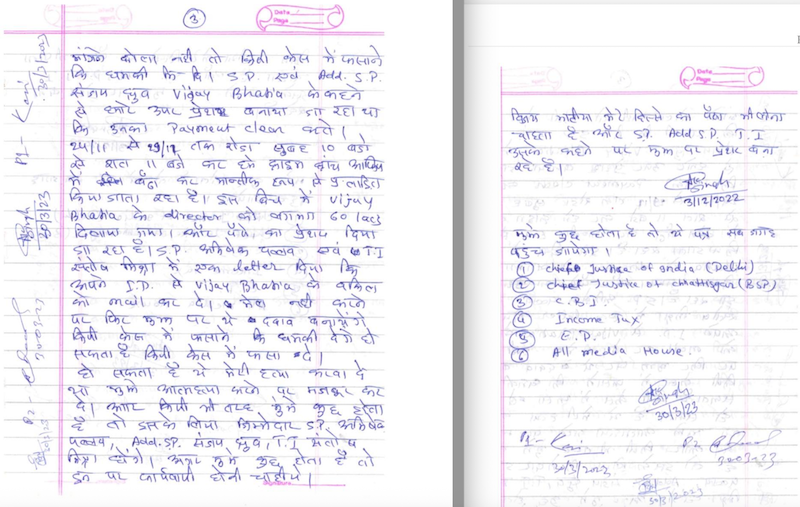 3
Date
Page
मांगने बोला नही तो किसी केस में फसाने
कि धमकी कि दि। S.P. एवं Add. S.P.
संजय ध्रुव Vijay Bhatia के कहने
से मेरे उपर प्रेशर बनाया जा रहा था
कि उनका Payment clean करो।
24/11 से 29/12 तक रोज सुबह 10 बजे
से रात 11 बजे तक हमे क्राइम ब्रांच आफिस
में बैठा कर मानसीक रूप से प्रताड़ित
किया जाता रहा है। इस बिच में Vijay
Bhatia के director को लगभग 60 लाख
दिलाया गया। और पैसे का प्रेशर दिया
जा रहा है। S.P. अभिषेक पल्लव एवं T.I
संतोष मिश्रा में एक letter दिया कि
अपने I.D. से Vijay Bhatia के वकिल
को मेल कर दे। मेल नही करने
पर फिर मुझ पर ये दबाव बनायेंगे
किसी केस में फसाने कि धमकी देंगे हो
सकता है किसी केस में फसा दे।
हो सकता है ये मेरी हत्या करवा दे
या मुझे आत्महत्या करने पर मजबूर कर
दे। अगर किसी भी तरह मुझे कुछ होता
है तो इसके लिया जिम्मेदार S.P. अभिषेक
पल्लव, Add. S.P. संजय ध्रुव, T.I संतोष
मिश्रा होंगे। अगर मुझे कुछ होता है तो
इन पर कार्यवाही होनी चाहीये।
P1-
30/3/2023
30/3/23
P2-
300323
Date
Page
विजय भाटीया मेरे हिस्से का पैसा भी लेना
चाहता है और S.P. Add S.P. T.I
उसके कहने पर मुझ पर प्रेशर बना
रहे है।
3/12/2022
मुझे कुछ होता है तो ये पत्र सब जगह
पहुच जायेगा।
1 chief Justice of India (Delhi)
2 chief Justice of chhattisgarh (BSP)
3 C.B.I.
4 Income Tax
5 E.D.
6 All media House.
30/3/23
P1-
30/3/2022
P2
300323
30/3/2023